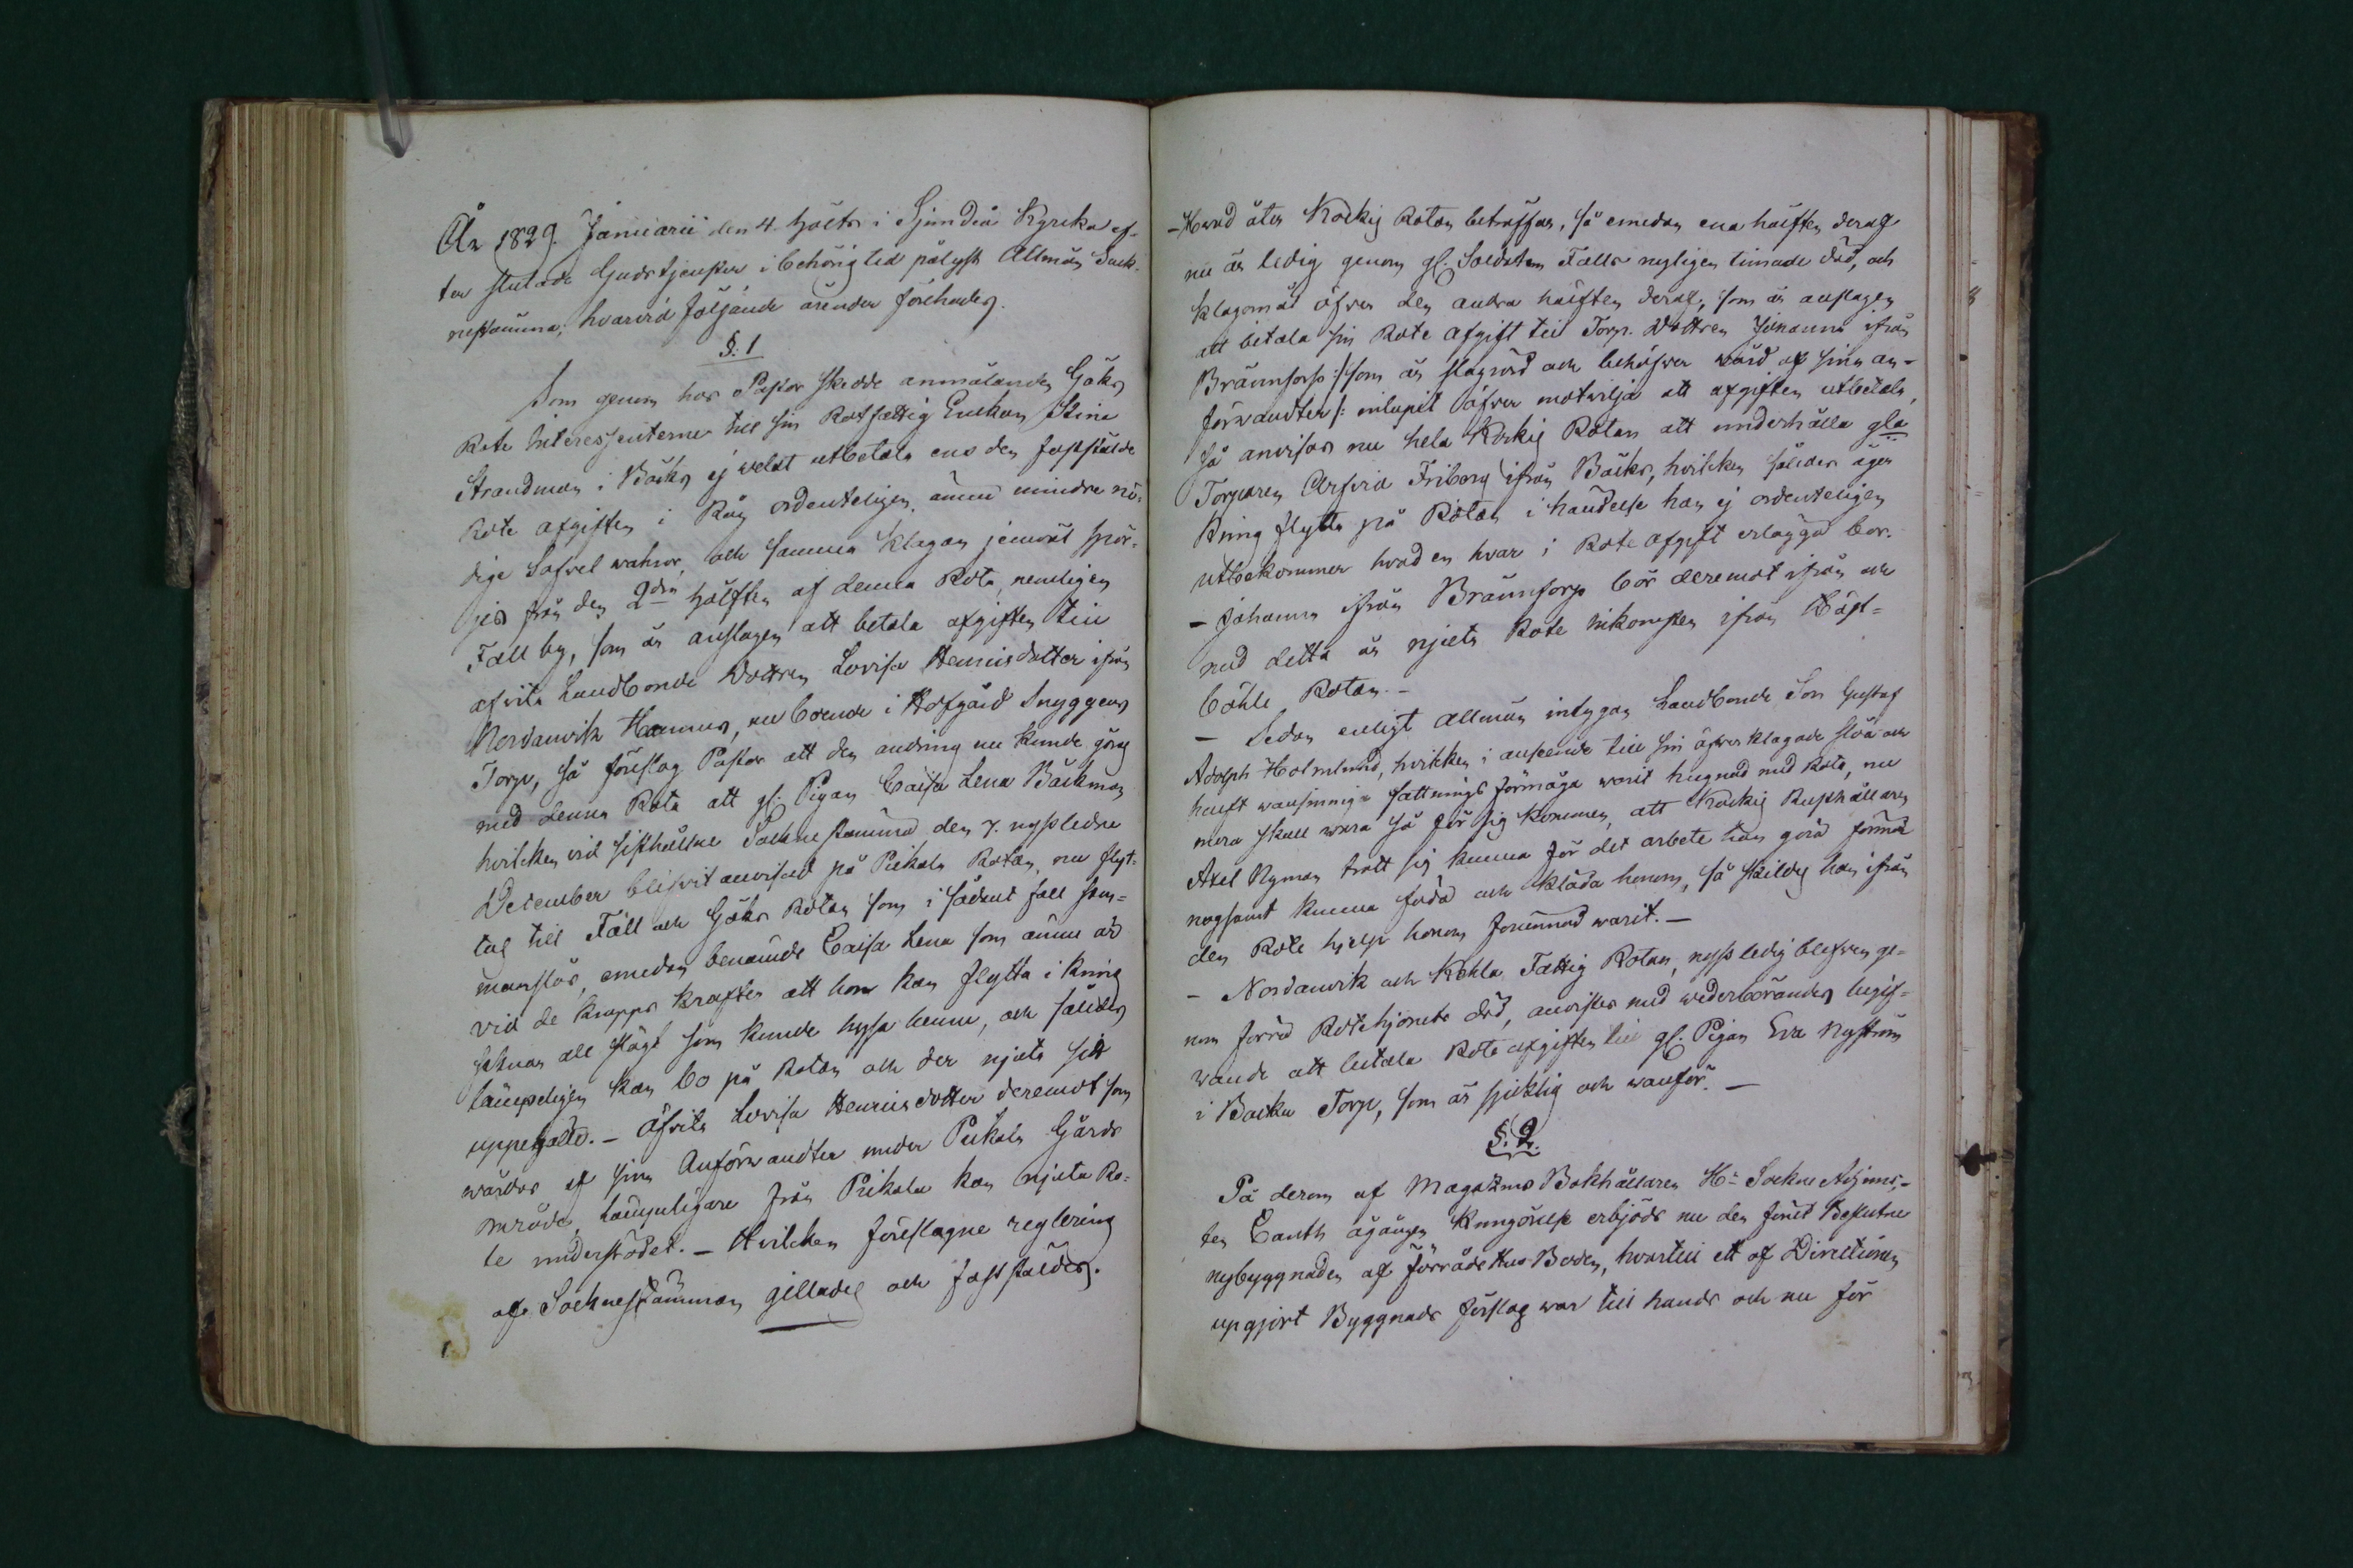 År 1829. Januarii den 4. hölts i Sjundeå Kyrka ef-
ter slutade Gudstjensten i behörig tid pålyst Allmän Sock-
nestämma, hvarvid följande ärender förehades.
§: 1
Som genom hos Pastor skedde anmälanden Göks
Rote Interessenterne till sin Rotfattig Enkan Stina
Strandman i Bäcks ej welat utbetala ens den faststälde
Rote afgiften i Råg ordenteligen, ännu mindre nö-
dige Sofvel wahror, och samma klagan jemväl spör-
jes från den 2dra hälften af denna Rota, nemligen
Fall by, som är anslagen att betala afgiften till
afvita Landbonde Dottren Lovisa Henricsdotter ifrån
Nordanvik Hannus, nu boende i Hofgård Snyggens
Torp, så föreslog Pastor att den ändring nu kunde göras
med denna Rota att gl. Pigan Caisa Lena Bäckman
hvilken vid sisthållne Sockne stämma den 7. nystledne
December blifvit anvisad på Pikala Rotan, nu flyt-
tas till Fall och Göks Rotan som i sådant fall sam-
manslås, emedan benämde Caisa Lena som ännu är
vid de kropps krafter att hon kan flytta i kring
saknar all slägt som kunde hysa henne, och således
lämpeligen kan bo på Rotan och der njuta sitt
uppehälle. - Afvita Lovisa Henricsdotter deremot som
wårdas af sina Anförwandter under Pickala Gårds
område, lämpeligare från Pikala kan njuta Ro-
te understödet. - Hvilken föreslagne reglering
af Socknestämman gillades och fastställdes.
- Hvad åter Kockis Rotan beträffar, så emedan ena hälften deraf
nu är ledig genom gl. Soldaten Falls nyligen timade död, och
klagomål öfver den andra hälften deraf, som är anslagen
att betala sin Rote afgift till Torp. Dottren Johanna ifrån
Brännforp :/ som är slagrörd och behöfver wård af sina an-
förwandter /: inlupit öfver motvilja att afgiften utbetala,
så anvisas nu hela Kockis Rotan att underhålla gla
Torparen Arfvid Friberg ifrån Bäcks, hvilken således äger
kring flytta på Rotan i händelse han ej ordenteligen
utbekommer hvad en hvar i Rote afgift erlägga bör.
- Johanna ifrån Brännforp bör deremot ifrån och
med detta år njuta Rote inkomsten ifrån Bäst-
böhle Rotan. -
- Sedan enligt allmän intygan Landbonde Son Gustaf
Adolph Holmlund, hvilken i anseende till sin öfver klagade slöa och
halft wansinniga fattnings förmåga warit hugnad med Rota, nu
mera skall wara så för sig kommen, att Kockis Rusthållaren
Axel Nyman trott sig kunna för det arbete han göra förmår
nogsamt kunna föda och kläda honom, så skildes han ifrån
den Rote hjelp honom förunnad warit. -
- Nordanvik och Kohla Fattig Rotan, nyss ledig blefven ge-
nom förra Rotehjonets död, anvistes med wederbörandes begif-
wande att betala Rote afgiften till gl. Pigan Eva Nyström
i Backa Torp, som är sjuklig och wanför. -
§: 2.
På derom af Magazins Bokhållaren Hr Sockne Adjunc-
ten Canth ågången kungörelse erbjöds nu den förut Beslutne
nybyggnaden af Förråds Hus Boden, hvartill ett af Directionen
upgjort Byggnads förslag war till hands och nu för